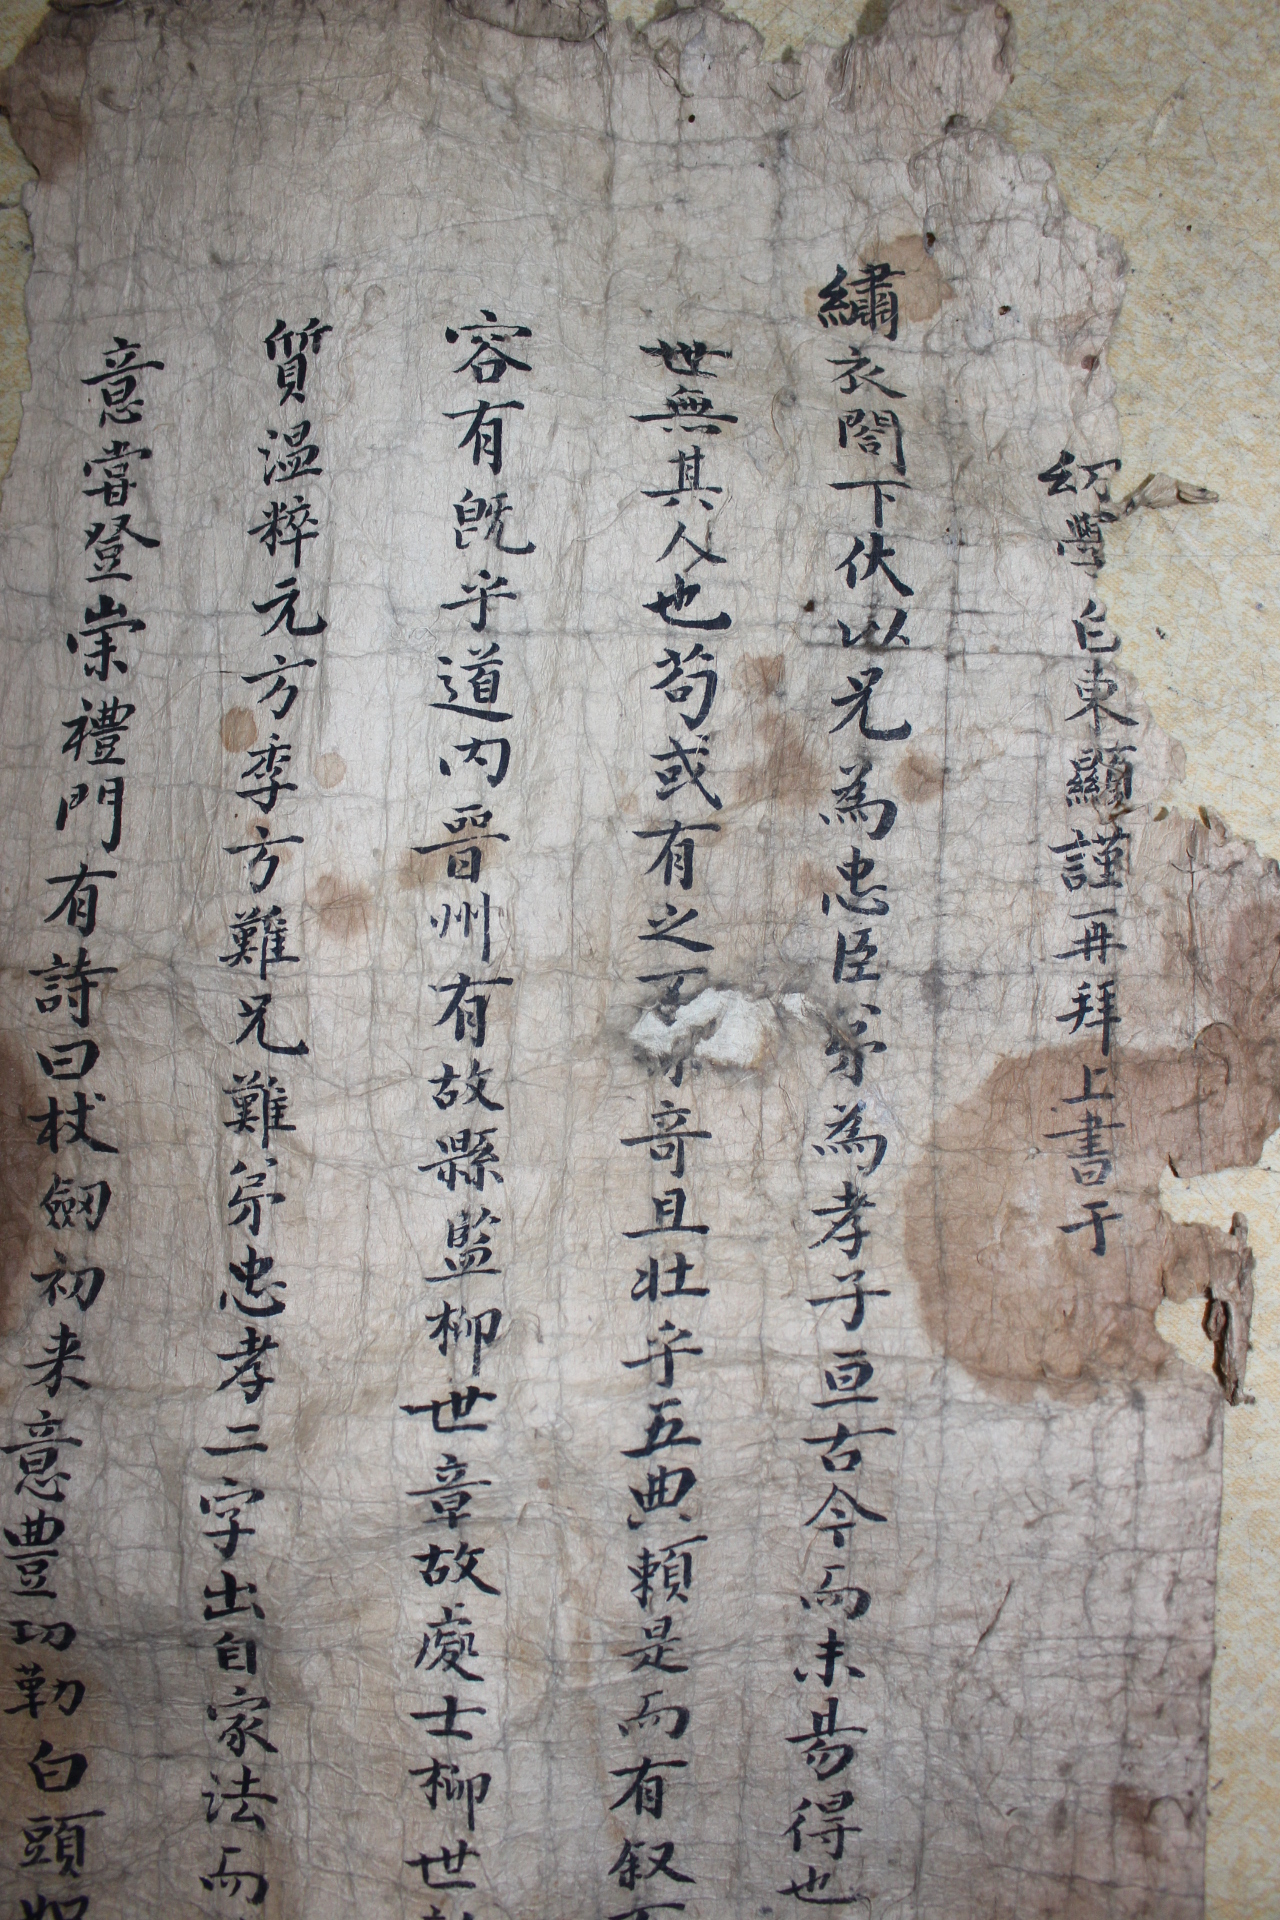 幼學 白東顯謹再拜上書于
繡衣閤下伏以兄為忠臣弟為孝子亘古今而未易得也
世無其人也苟或有之 奇且壯乎五典賴是而有叙
容有旣乎道內晋州有故縣監柳世章故處士柳世
質温粹元方季方難兄難弟忠孝二字出自家法而
意嘗登崇禮門有詩曰杖劒初来意豊功勒白頭